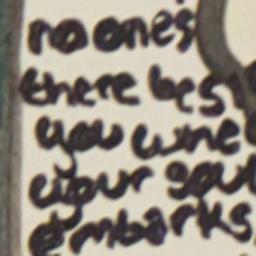 no ones
there besi
you wne
your soul
embarks